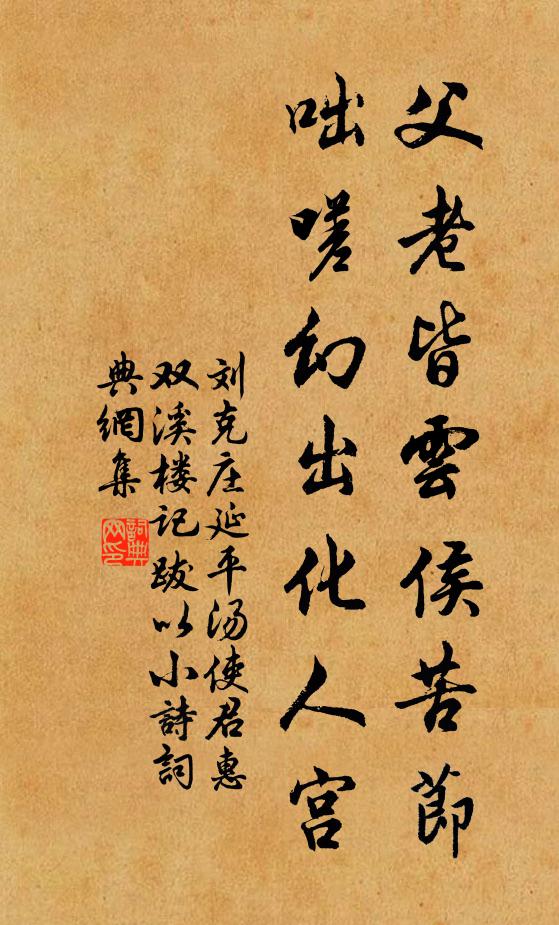 父老皆雲侯苦節
咄嗟幻出化人宮
刘克庄延平汤使君惠
双溪楼记跋以小詩詞
典網集
詞典网印